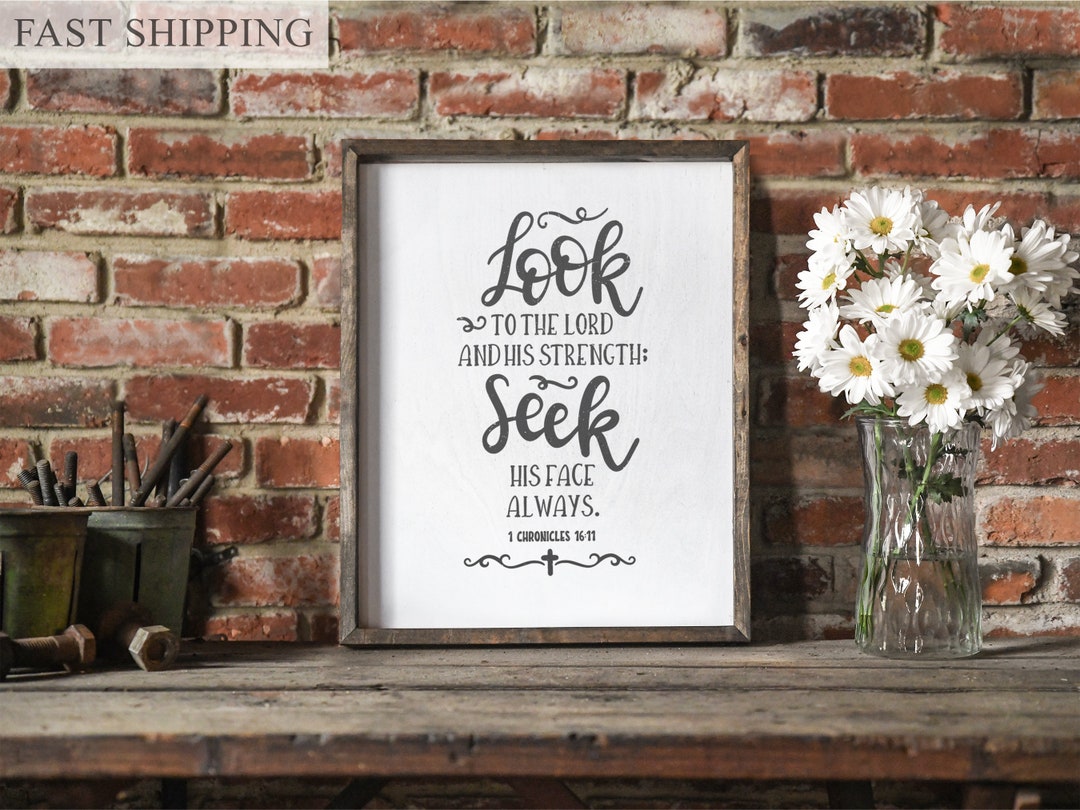 FAST SHIPPING
Look
TO THE LORD
AND HIS STRENGTH;
Seek
HIS FACE
ALWAYS.
1 CHRONICLES 16:11